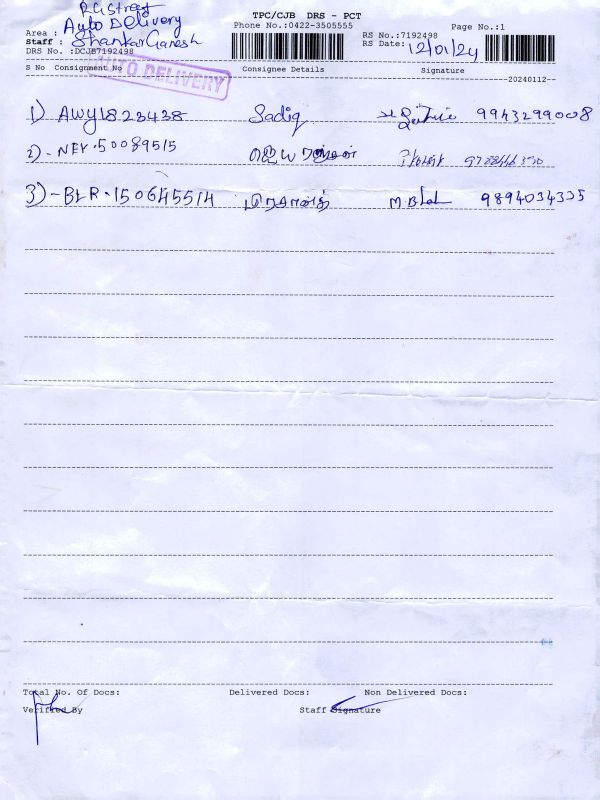 P.C. Street
TPC/CJB DRS - PCT
Auto Delivery
Phone No.:0422-3505555
Page No.:1
Area :
RS No.:7192498
Staff : Shankar Ganesh
RS Date: 12/01/24
DRS No. :DCJB7192498
AUTO DELIVERY
S No Consignment No Consignee Details Signature
20240112
1) AWY1823438 Sadiq 9943299008
2) - NEY. 50089515
3) - BLR. 150645514 பிரசானத் 9894034335
Total No. Of Docs: Delivered Docs: Non Delivered Docs:
Verified By Staff Signature